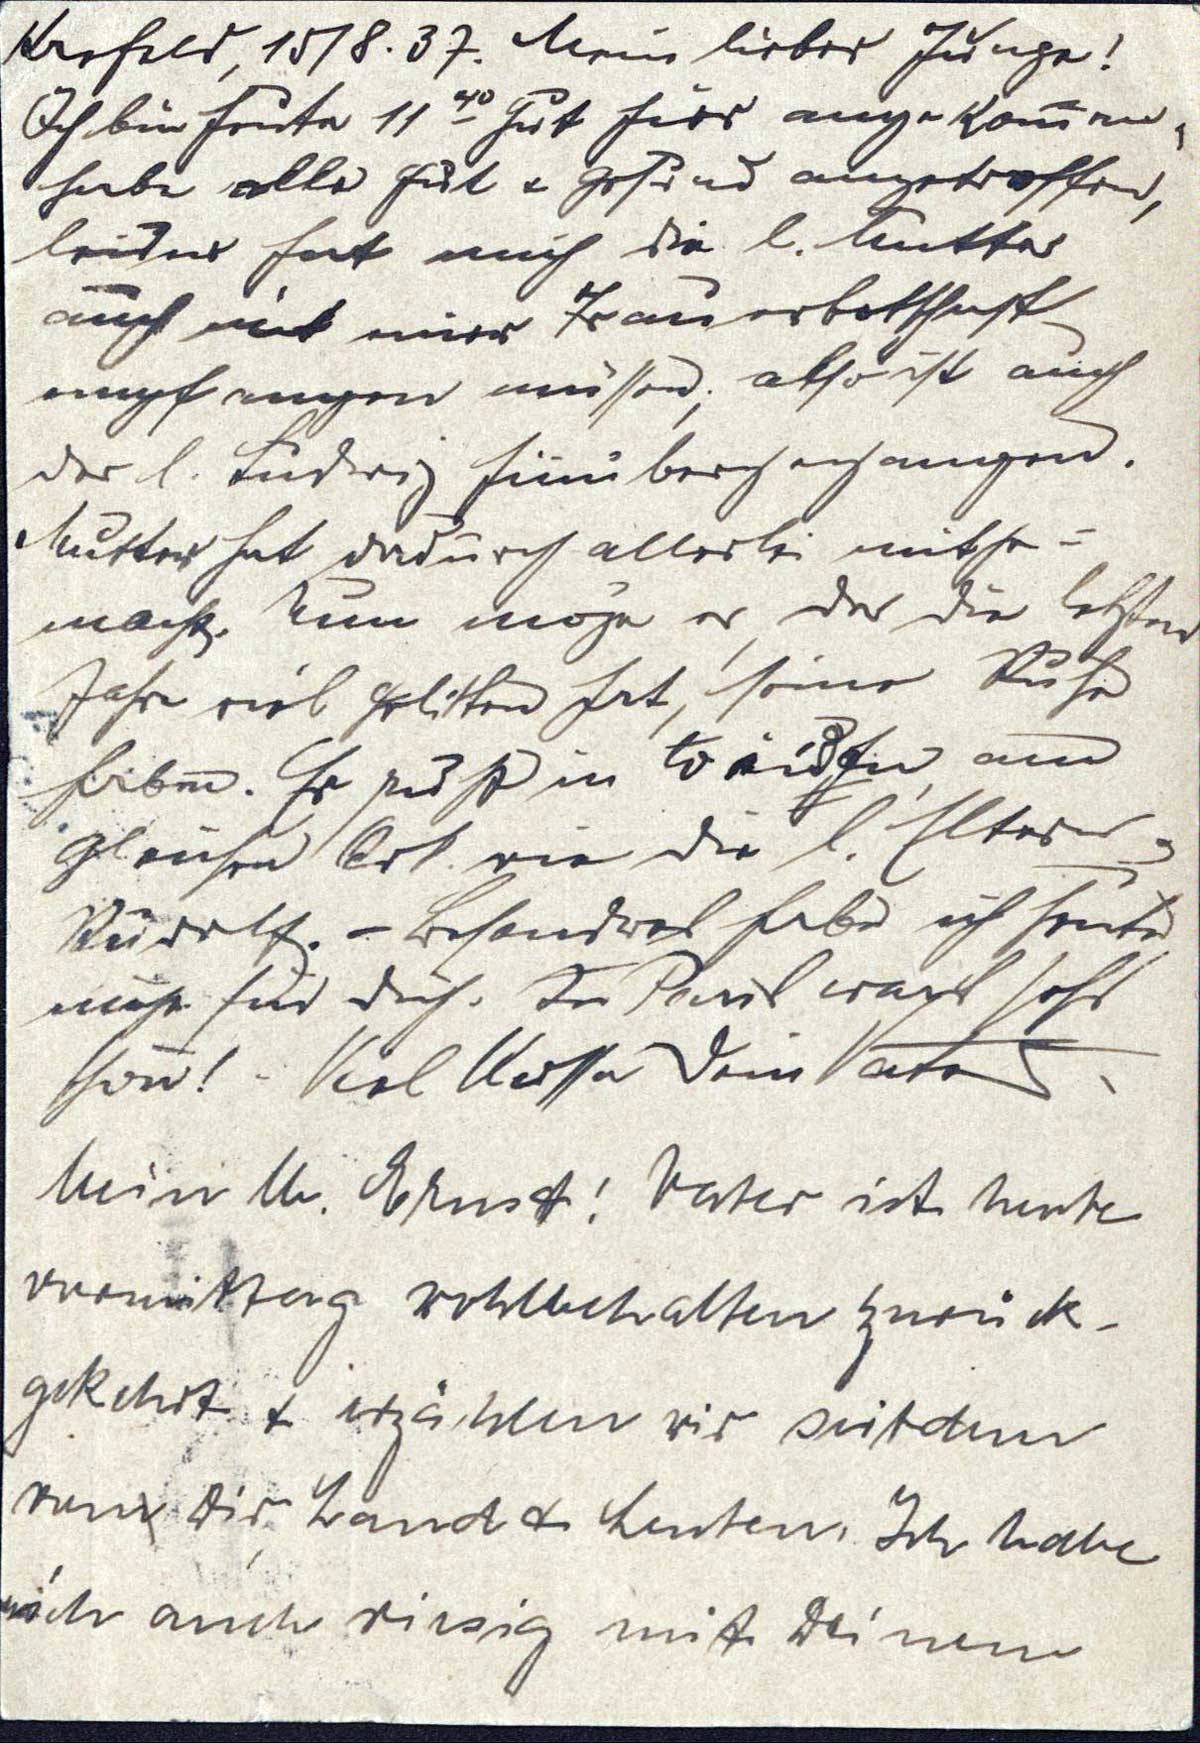 Krefeld, 15/8. 37. Mein lieber Junge!
Ich bin heute 11 40 gut hier angekommen,
habe alle gut & gesund angetroffen,
leider hat mich die l. Mutter
auch mit einer Trauerbotschaft
empfangen müssen, also ist auch
der l. Ludwig hinübergegangen.
Mutter hat dadurch allerlei mitge-
macht. Nun möge er, der die letzten
Jahre viel gelitten hat, seine Ruhe
haben. Er ruht in am
gleichen Ort wie die l. Eltern &
Rudolf. – habe ich heute
nicht für Dich. In Paris war's sehr
schön! - Viel Küsse Dein Vater.
Mein lb. Ernst! Vater ist heute
vormittag wohlbehalten zurück-
gekehrt & erzählen wir seitdem
von Dir, Land & Leuten. Ich habe
mich auch riesig mit Deinem